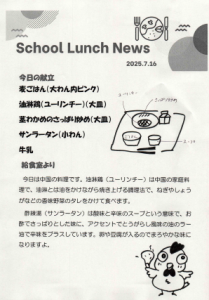 School Lunch News
2025.7.16
今日の献立
麦ごはん(大わん肉ピンク)
油淋鶏(ユーリンチー)(大皿)
茎わかめのさっぱり炒め(大皿)
サンラータン(小わん)
牛乳
給食室より
今日は中国の料理です。油淋鶏(ユーリンチー)は中国の家庭料
理で、油淋とは油をかけながら焼き上げる調理法で、ねぎやしょう
がなどの香味野菜のタレをかけて食べます。
酢辣湯(サンラータン)は酸味と辛味のスープという意味で、お
酢でさっぱりとした味に、アクセントでとうがらし風味の油のラー
油で辛味をプラスしています。卵や豆腐が入るのでまろやかな味に
なりますよ。